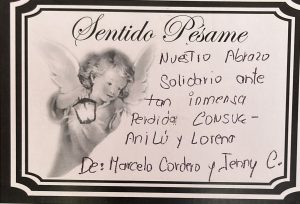 Sentido Pésame
Nuestro Abrazo
Solidario ante
tan inmensa
Perdida CONSUE-
Anilú y Lorena
De: Marcelo Cordero y Jenny C.